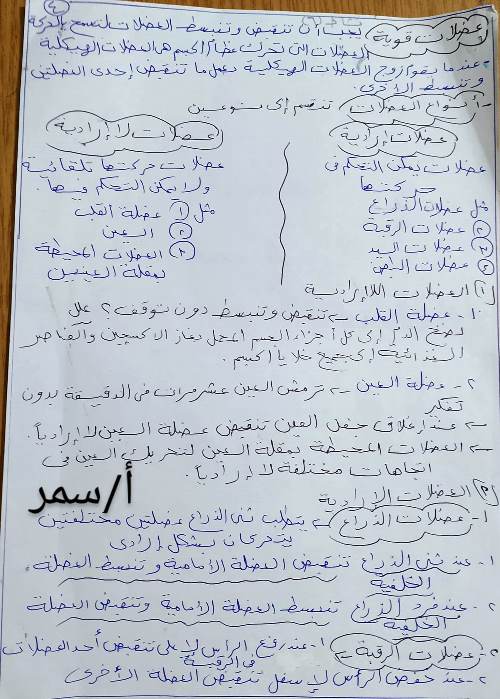 ٤
عضلات قوية يجب أن تنقبض وتنبسط العضلات لتسمح بالحركة
العضلات التى تحرك عظام الجسم هى العضلات الهيكلية
- عندما يقوم زوج العضلات الهيكلية بعمل ما تنقبض إحدى العضلتين
وتنبسط الأخرى.
- أنواع العضلات تنقسم إلى نوعين
عضلات إرادية
عضلات يمكن التحكم فى
حركتها
مثل عضلات الذراع
٢ عضلات الرقبة
٣ عضلات اليد
٤ عضلات البطن
عضلات لا إرادية
عضلات حركتها تلقائية
ولا يمكن التحكم فيها.
مثل ١ عضلة القلب
٢ العين
٣ العضلات المحيطة
بمقلة العينين
١) العضلات اللاإرادية
١- عضلة القلب ← تنقبض وتنبسط دون توقف؟ علل
لضخ الدم إلى كل أجزاء الجسم المحمل بغاز الاكسجين والعناصر
الغذائية إلى جميع خلايا الجسم.
٢- عضلة العين ← ترمش العين عشر مرات فى الدقيقة بدون
تفكير
← عند إغلاق جفن العين تنقبض عضلة العين لا إرادياً.
← العضلات المحيطة بمقلة العين لتحريك العين فى
اتجاهات مختلفة لا إرادياً.
أ/سمر
٢) العضلات الإرادية
١- عضلات الذراع ← يتطلب ثنى الذراع عضلتين مختلفتين
يتحركان بشكل إرادى
١- عند ثنى الذراع تنقبض العضلة الأمامية وتنبسط العضلة
الخلفية
٢- عند فرد الذراع تنبسط العضلة الأمامية وتنقبض العضلة
الخلفية
٢- عضلات الرقبة ← ١- عند رفع الرأس لأعلى تنقبض أحد العضلات
فى الرقبة
٢- عند خفض الرأس لأسفل تنقبض العضلة الأخرى